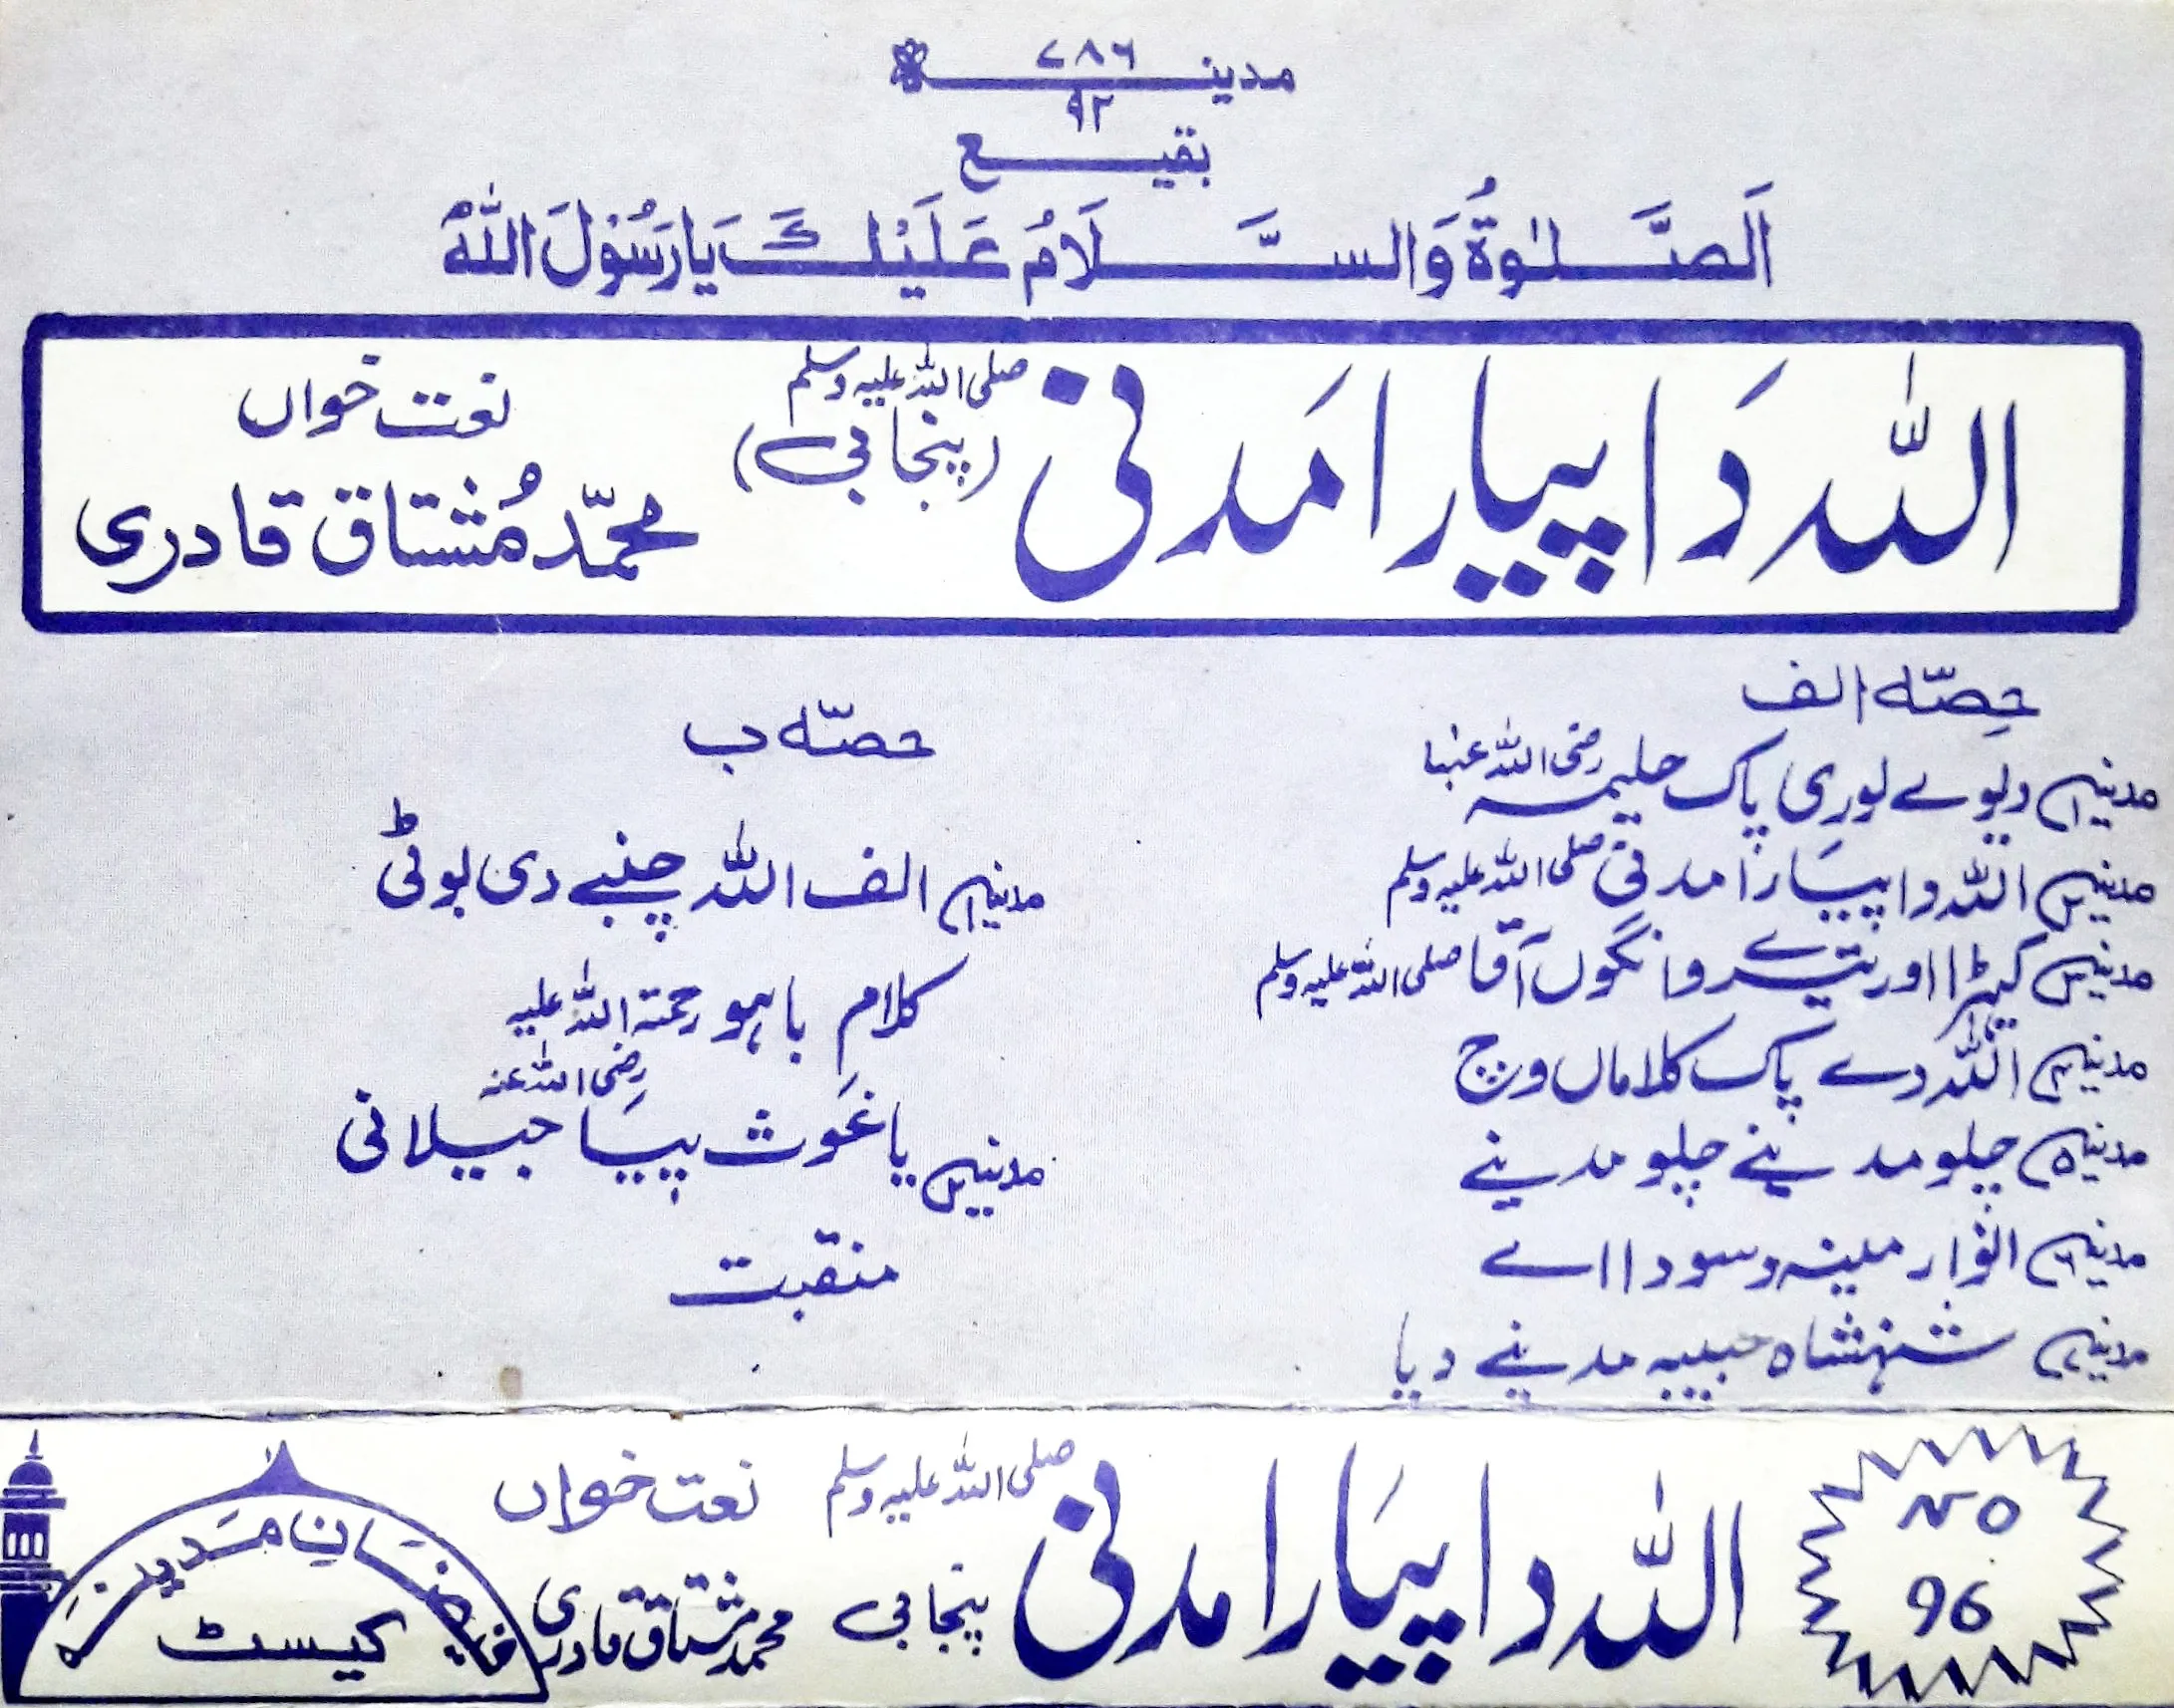 مدینہ
۷۸۶
۹۲
بقیع
اَلصَّلٰوۃُ وَالسَّلَامُ عَلَیْکَ یَارَسُوْلَ اللّٰہ
اللہ دَا پیارا مَدنی صلی اللہ علیہ وسلم (پنجابی)
نعت خواں
محمّد مُشتاق قادری
حِصّہ الف
مدینہ ۱ دیوے لوری پاک حلیمہ رضی اللہ عنہا
مدینہ ۲ اللہ دا پیَارا مدنی صلی اللہ علیہ وسلم
مدینہ ۳ کیہڑا اور تیرے وانگوں آقا صلی اللہ علیہ وسلم
مدینہ ۴ اللہ دے پاک کلاماں وچ
مدینہ ۵ چلو مدینے چلو مدینے
مدینہ ۶ انوار مینہ وسودا اے
مدینہ ۷ شہنشاہ حبیبہ مدینے دیا
حصّہ ب
مدینہ ۱ الف اللہ چنبے دی بوٹی
کلام باہو رحمۃ اللہ علیہ
مدینہ ۲ یا غَوث پیَا جیلانی رضی اللہ عنہ
منقبت
NO
96
اللہ دا پیَارا مدنی صلی اللہ علیہ وسلم
پنجابی
نعت خواں
محمد مشتاق قادری
فیضَانِ مَدینہ
کیسٹ